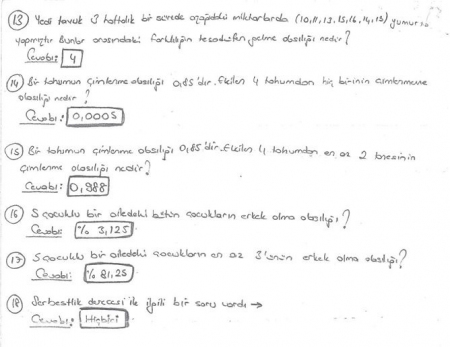 (13) Yedi tavuk 3 haftalık bir sürede aşağıdaki miktarlarda (10,11,13,15,16,14,15) yumurta
yapmıştır bunlar arasındaki farklılığın tesadüften gelme olasılığı nedir?
Cevabı: 4
(14) Bir tohumun çimlenme olasılığı 0,85'dir. Ekilen 4 tohumdan hiç birinin çimlenmeme
olasılığı nedir?
Cevabı: 0,0005
(15) Bir tohumun çimlenme olasılığı 0,85'dir. Ekilen 4 tohumdan en az 2 tanesinin
çimlenme olasılığı nedir?
Cevabı: 0,988
(16) 5 çocuklu bir ailedeki bütün çocukların erkek olma olasılığı?
Cevabı: % 3,125
(17) 5 çocuklu bir ailedeki çocukların en az 3'ünün erkek olma olasılığı?
Cevabı: % 81,25
(18) Serbestlik derecesi ile ilgili bir soru vardı →
Cevabı: Hiçbiri